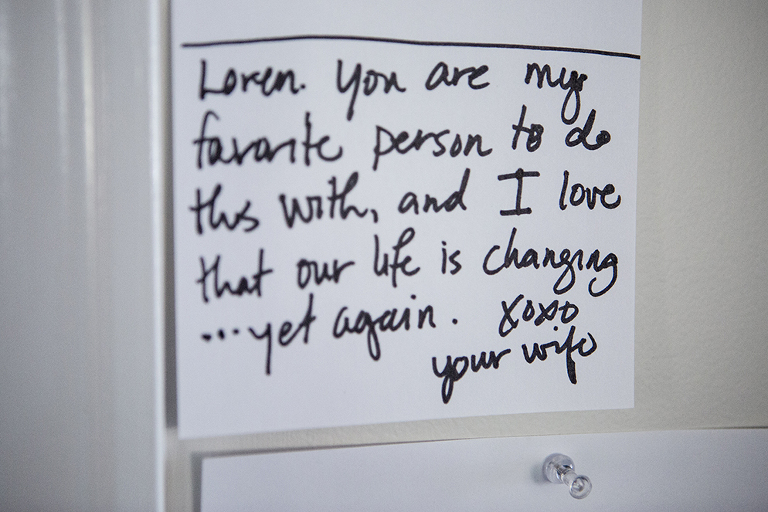 Loren. You are my
favorite person to do
this with, and I love
that our life is changing
...yet again. xoxo
your wife